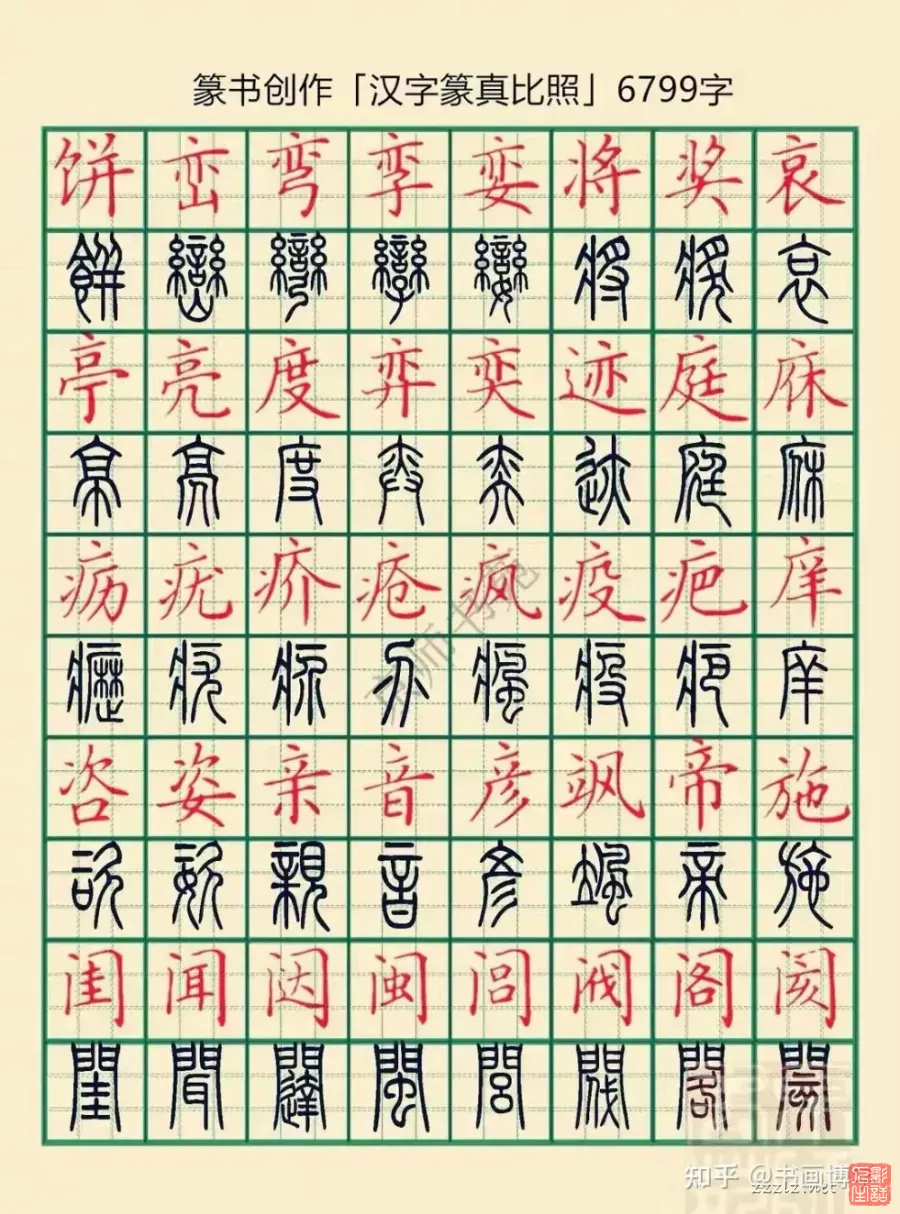 篆书创作「汉字篆真比照」6799字
饼 峦 弯 孪 娈 将 奖 哀
餅 巒 彎 孿 孌 將 獎 哀
亭 亮 度 弈 奕 迹 庭 庥
亭 亮 度 弈 奕 迹 庭 庥
疬 疣 疥 疮 疯 疫 疤 庠
癧 疣 疥 瘋 疫 疤 庠
咨 姿 亲 音 彦 飒 帝 施
姿 親 音 彥 颯 帝 施
闺 闻 闼 闽 闾 阀 阁 阂
閨 聞 闥 閩 閭 閥 閣 閡
知乎 @书画博
zzzlz.net